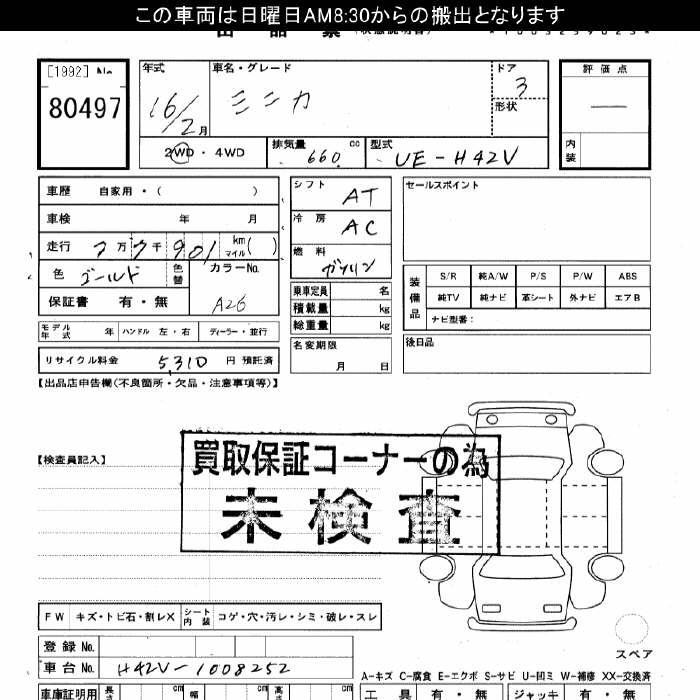 この車両は日曜日AM8:30からの搬出となります
[1992] No
80497
年式 車名・グレード ドア 評価点
16/2月 ミニカ 3 —
形状
2WD・4WD 排気量 660 cc 型式 UE-H42V 内装
車歴 自家用・( )
車検 年 月
走行 万 千 901 km マイル ( )
色 ゴールド 色替 カラーNo. A26
保証書 有・無
モデル年式 年 ハンドル 左・右 ディーラー・並行
リサイクル料金 5,310 円 預託済
シフト AT
冷房 AC
燃料 ガソリン
乗車定員 名
積載量 kg
総重量 kg
名変期限 月 日
セールスポイント
装備品 S/R 純A/W P/S P/W ABS
純TV 純ナビ 革シート 外ナビ エアB
ナビ型番:
後日品
【出品店申告欄(不良箇所・欠品・注意事項等)】
【検査員記入】
買取保証コーナーの為
未検査
FW キズ・トビ石・割レX シート内装 コゲ・穴・汚レ・シミ・破レ・スレ
登録No.
車台No. H42V-1008252
スペア
A-キズ C-腐食 E-エクボ S-サビ U-凹ミ W-補修 XX-交換済
車庫証明用 長さ cm 幅 cm 高さ cm 工具 有・無 ジャッキ 有・無